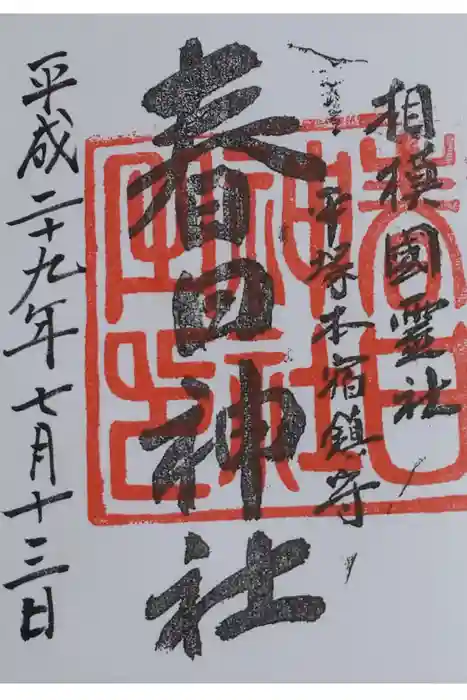 相模國霊社
平塚本宿鎮守
春日神社
平成二十九年七月十三日
春日神社之印